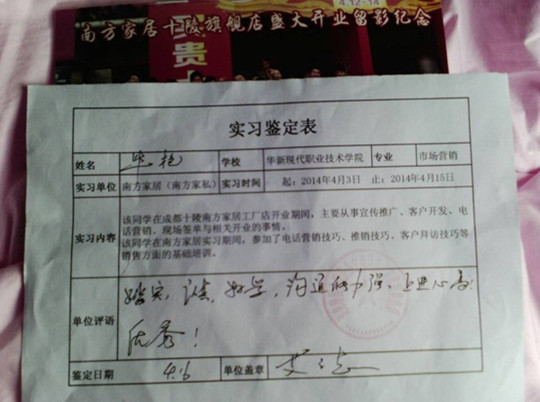 4.12-14
南方家居十陵旗舰店盛大开业留影纪念
贵
实习鉴定表
姓名 学校 华新现代职业技术学院 专业 市场营销
实习单位 南方家居（南方家私） 实习时间 起：2014年4月3日 止：2014年4月15日
实习内容
该同学在成都十陵南方家居工厂店开业期间，主要从事宣传推广、客户开发、电
话营销、现场签单与相关开业的事情。
该同学在南方家居实习期间，参加了电话营销技巧、推销技巧、客户拜访技巧等
销售方面的基础培训。
单位评语
踏实，认真，好学，沟通能力强、上进心高！
优秀！
鉴定日期 4.16 单位盖章